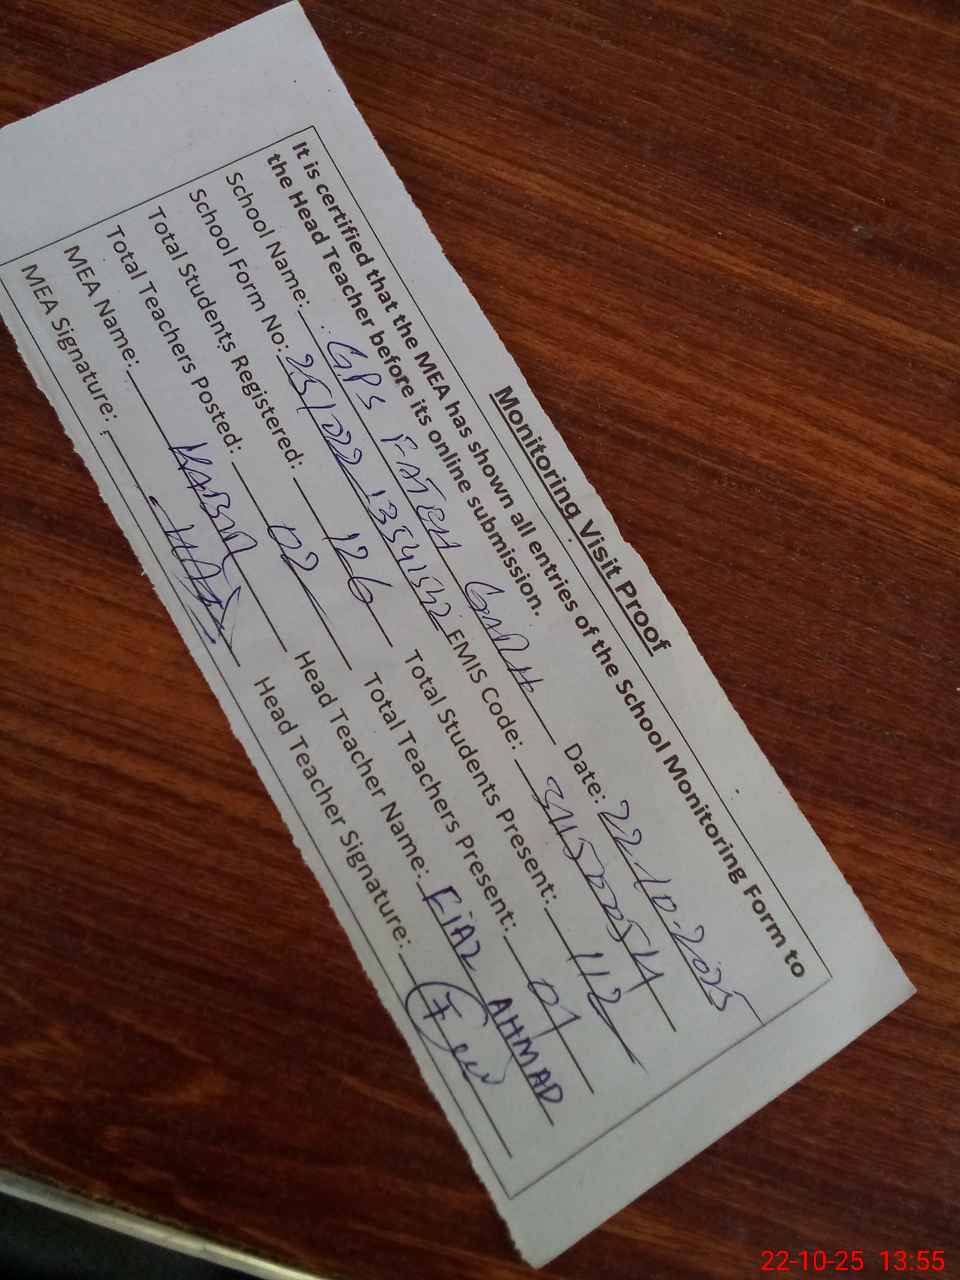 Monitoring Visit Proof
It is certified that the MEA has shown all entries of the School Monitoring Form to
the Head Teacher before its online submission.
School Name: GPS FATEH GARH Date: 22-10-2025
School Form No: EMIS Code:
Total Students Registered: 126 Total Students Present: 112
Total Teachers Posted: 02 Total Teachers Present: 01
MEA Name: Head Teacher Name: FIAZ AHMAD
MEA Signature: Head Teacher Signature:
22-10-25 13:55